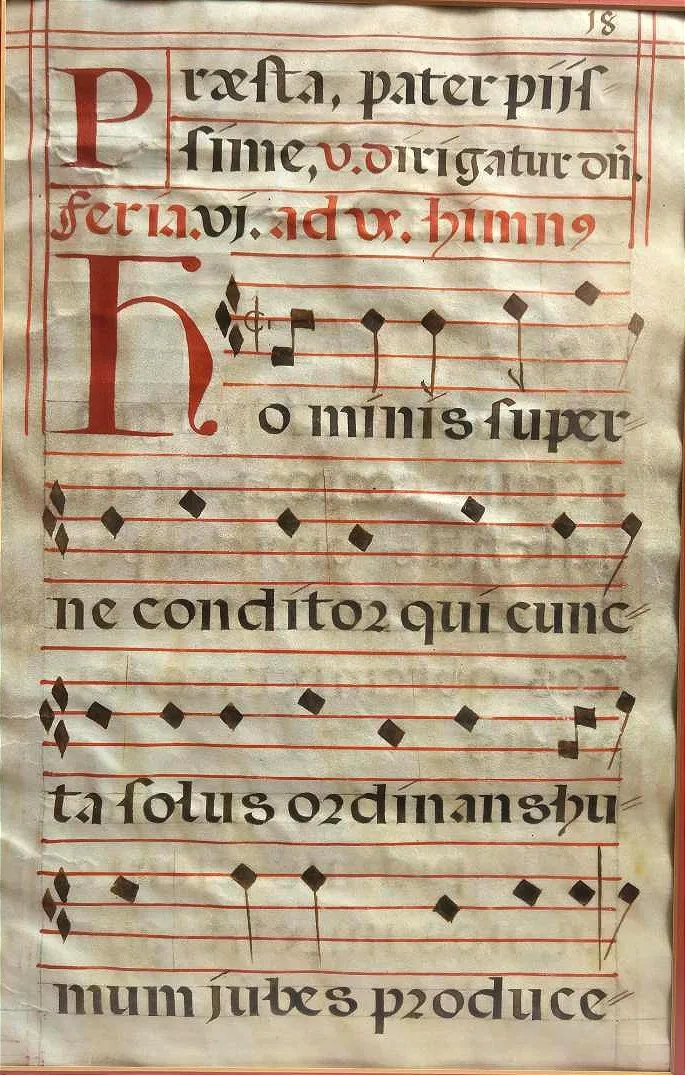 18
Præſta, pater pijſ
ſime, v. dirigatur dñ.
feria. vj. ad vꝝ. himnꝯ
Ho minis ſuper
ne conditoꝛ qui cunc
ta ſolus oꝛdinans hu
mum jubes pꝛoduce